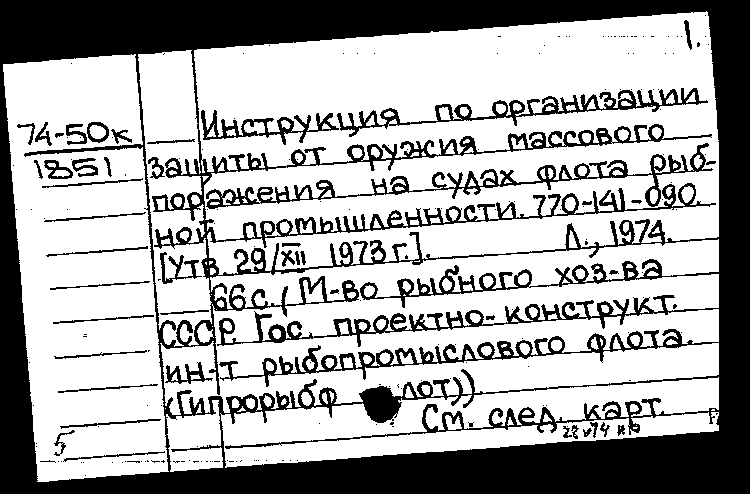 1.
74-50к
1851
Инструкция по организации
защиты от оружия массового
поражения на судах флота рыб-
ной промышленности. 770-141-090.
[Утв. 29/XII 1973 г.]. Л., 1974.
66 с. (М-во рыбного хоз-ва
СССР. Гос. проектно-конструкт.
ин-т рыбопромыслового флота.
(Гипрорыбф лот))
См. след. карт.
5